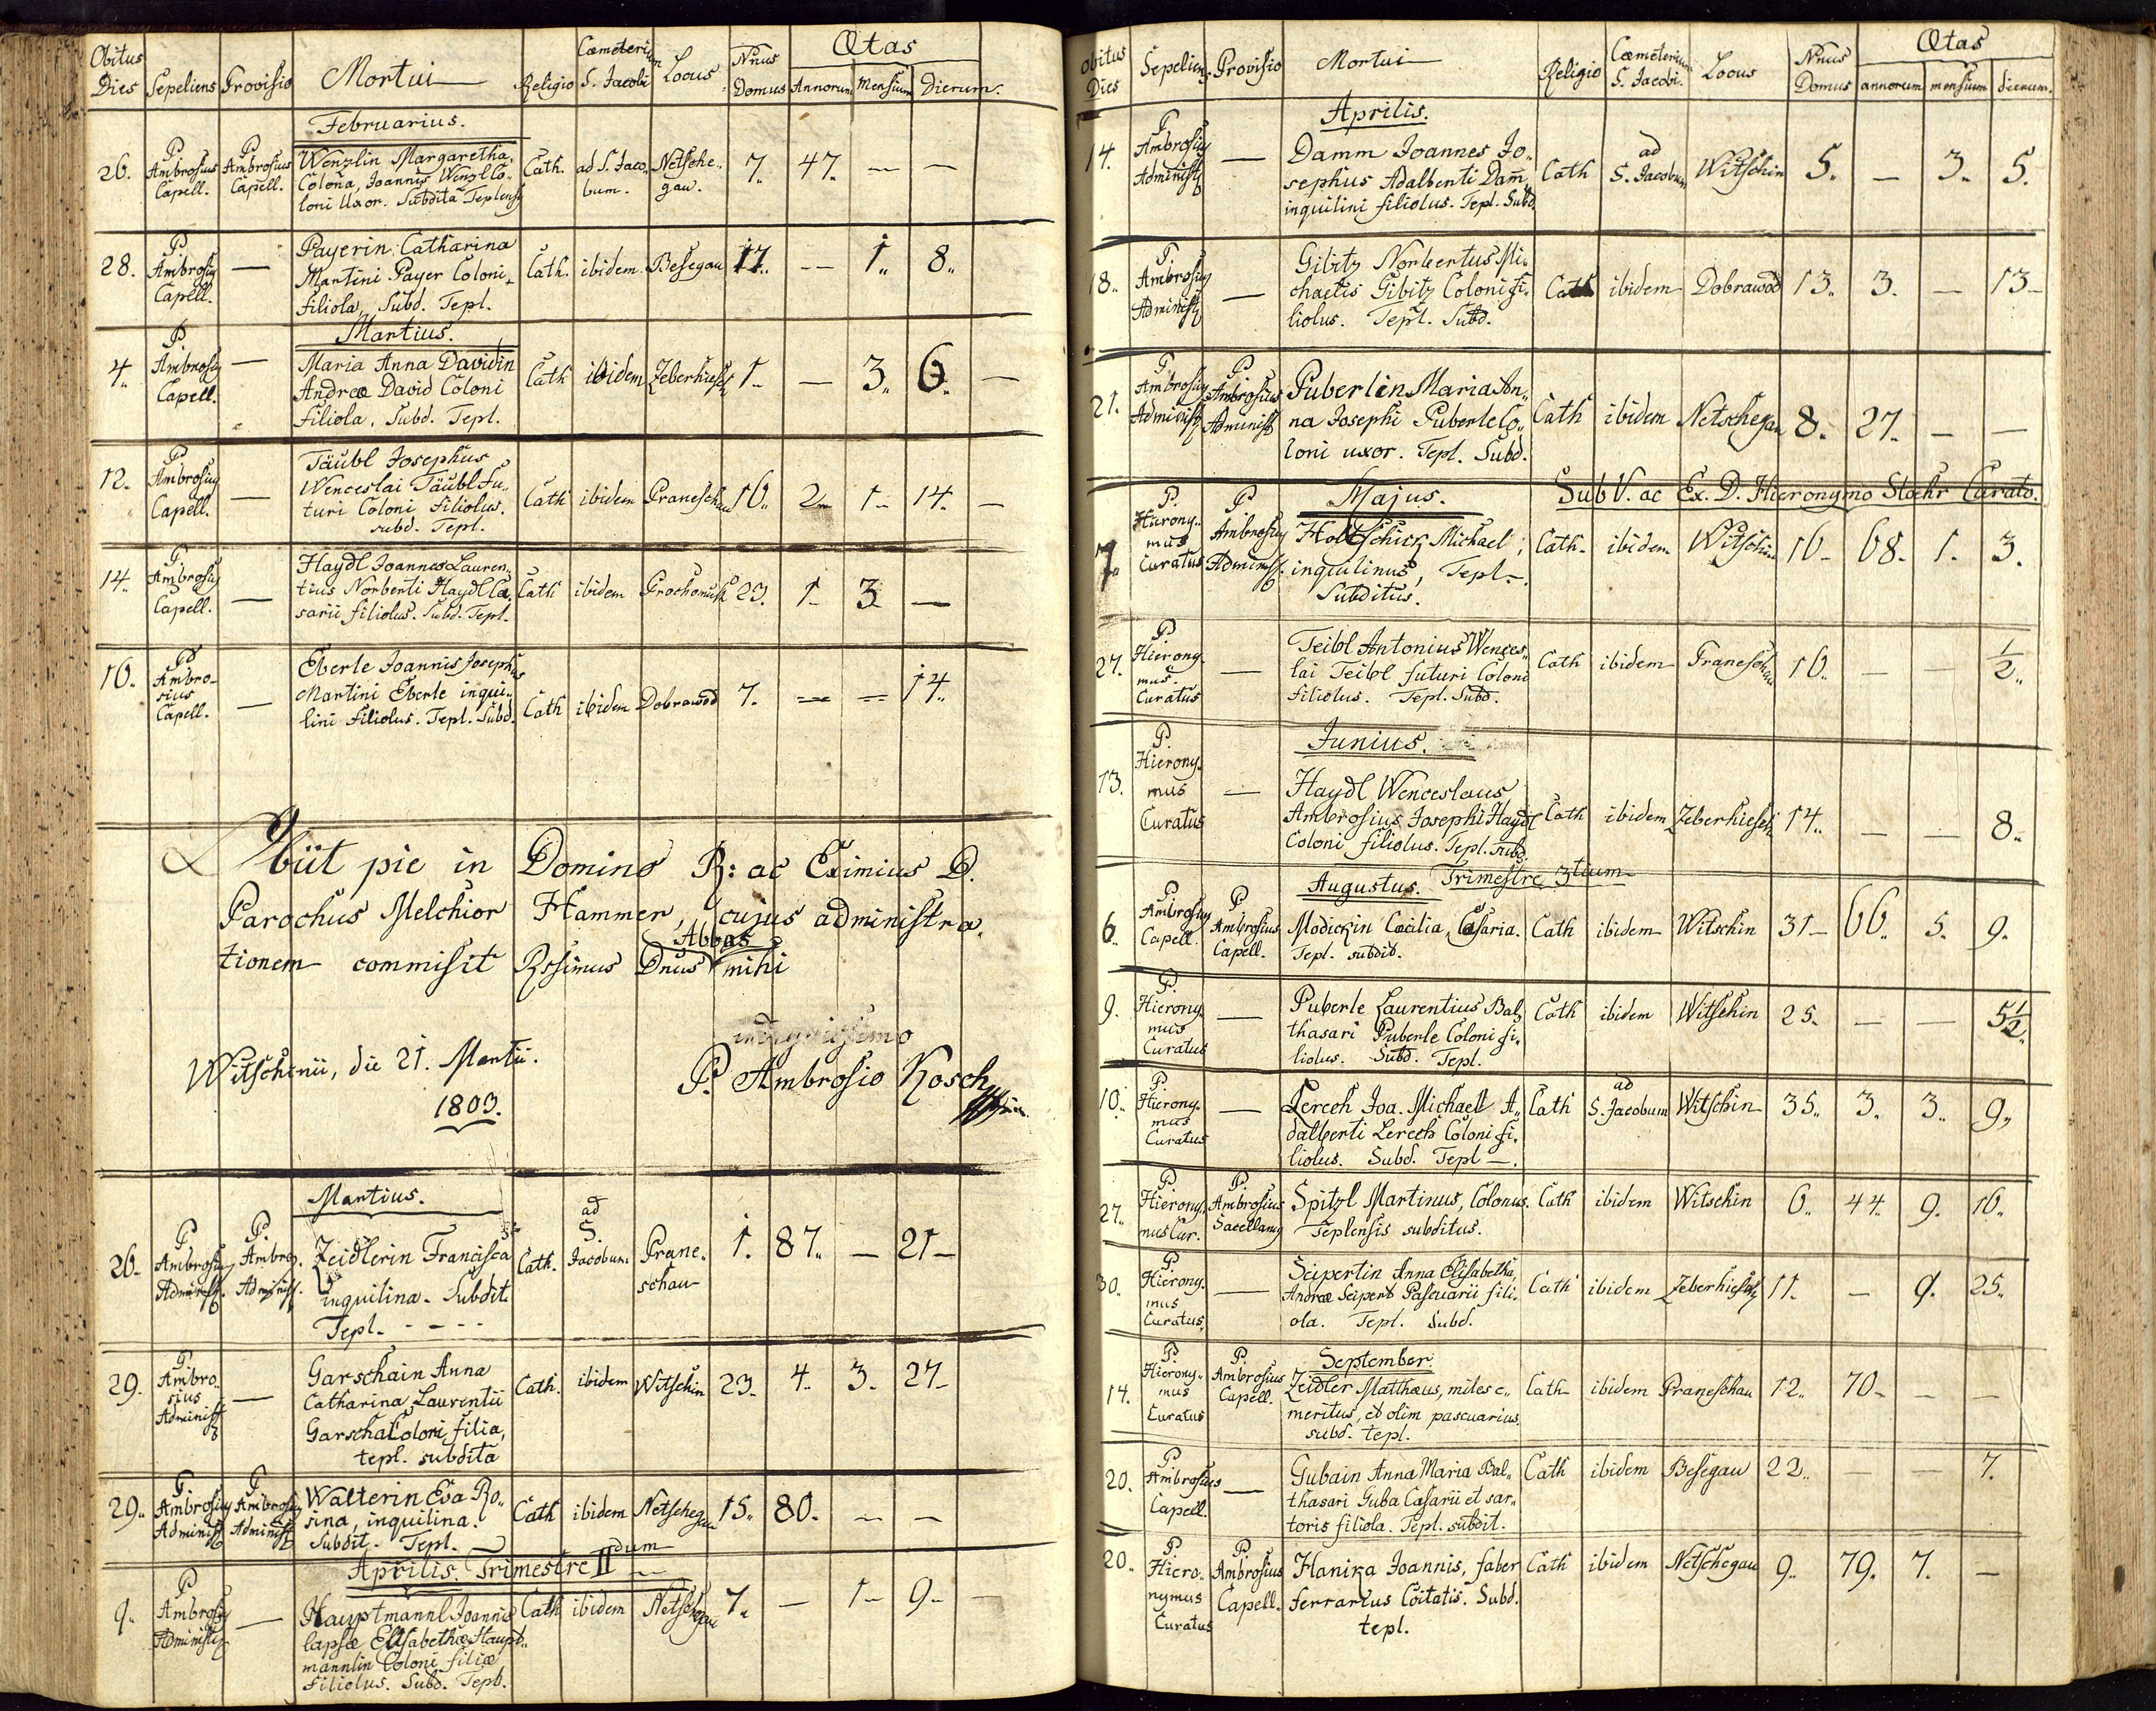 Obitus Dies Sepeliens Provisio Mortui Religio Cœmeterium S. Jacobi Locus Nrus Domus Ætas Annorum Mensium Dierum.
Februarius.
26. P. Ambrosius Capell. P. Ambrosius Capell. Wenzlin Margaretha, Cath. ad S. Jaco- Netsche- 7. 47. — —
Colona, Joannis Wenzl Co- bum. gau.
loni Uxor. Subdita Teplensis
28. P. Ambrosius Capell. — Payerin Catharina Cath. ibidem. Besegau 17. — 1. 8.
Martini Payer Coloni
filiola, Subd. Tepl.
Martius.
4. P. Ambrosius Capell. — Maria Anna Davidin Cath ibidem Zeberhiesch 1. — 3. 6. —
Andreæ David Coloni
Filiola, Subd. Tepl.
12. P. Ambrosius Capell. — Täubl Josephus Cath ibidem Praneschau 16. 2. 1. 14. —
Wenceslai Täubl fu-
turi Coloni Filiolus.
subd. Tepl.
14. P. Ambrosius Capell. — Haydl Joannes Lauren- Cath ibidem Prochomuth 23. 1. 3. —
tius Norberti Haydl Ca-
sarii filiolus. Subd. Tepl.
16. P. Ambrosius Capell. — Eberle Joannis Josephus Cath ibidem Dobrawod 7. — — 14.
Martini Eberle inqui-
lini Filiolus. Tepl. Subd.
Obiit pie in Domino R: ac Eximius D.
Parochus Melchior Hammer, cujus administra-
tionem commisit Rssimus Dnus Abbas mihi
indignissimo
Witschinii, die 21. Martii. P. Ambrosio Kosch
1803.
Martius.
26. P. Ambrosius Administ. P. Ambros. Administ. Zeidlerin Francisca Cath. ad S. Jacobum Prane- 1. 87. — 21.
inquilina. Subdit. schau
Tepl. - - -
29. P. Ambrosius Administ. — Garschain Anna Cath. ibidem Witschin 23. 4. 3. 27.
Catharina, Laurentii
Garscha Coloni, filia,
tepl. subdita
29. P. Ambrosius Administ. P. Ambrosius Administ. Walterin Eva Ro- Cath ibidem Netschegau 15. 80. — —
sina, inquilina.
Subdit. Tepl.
Aprilis. Trimestre II dum
9. P. Ambrosius Administ. — Hauptmannl Joannis Cath ibidem Netschgau 7. — 1. 9. —
lapsæ Elisabethæ Haupt-
mannlin Coloni filiæ
Filiolus. Subd. Tepl.
Obitus Dies Sepeliens Provisio Mortui Religio Cœmeterium S. Jacobi. Locus Nrus Domus Ætas annorum mensium dierum.
Aprilis.
14. P. Ambrosius Administ. — Damm Joannes Jo- Cath ad S. Jacobum Witschin 5. — 3. 5.
sephus Adalberti Dam̄
inquilini filiolus. Tepl. Subd.
18. P. Ambrosius Administ. — Gibitz Norbertus Mi- Cath ibidem Dobrawod 13. 3. — 13.
chaelis Gibitz Coloni fi-
liolus. Tepl. Subd.
21. P. Ambrosius Administ. P. Ambrosius Administ. Puberlin Maria An- Cath ibidem Netschegau 8. 27. — —
na Josephi Puberle Co-
loni uxor. Tepl. Subd.
Majus. Sub V. ac Ex. D. Hieronymo Stoehr Curato.
7. P. Hieronymus Curatus P. Ambrosius Administ. Holtschick Michael, Cath. ibidem Witschin 16. 68. 1. 3.
inquilinus, Tepl.
Subditus.
27. P. Hieronymus. Curatus — Teibl Antonius Wences- Cath ibidem Praneschau 16. — — 1/2.
lai Teibl futuri Coloni
Filiolus. Tepl. Subd.
Junius.
13. P. Hieronymus Curatus — Haydl Wenceslaus Cath ibidem Zeberhiesch 14. — — 8.
Ambrosius, Josephi Haydl
Coloni filiolus. Tepl. subd.
Augustus. Trimestre 3tium
6. P. Ambrosius Capell. P. Ambrosius Capell. Modickin Cæcilia, Casaria. Cath ibidem Witschin 31. 66. 5. 9.
Tepl. subdit.
9. P. Hieronymus Curatus — Puberle Laurentius Bal- Cath ibidem Witschin 25. — — 5 1/2.
thasari Puberle Coloni fi-
liolus. Subd. Tepl.
10. P. Hieronymus Curatus — Lerech Joa. Michael A- Cath ad S. Jacobum Witschin 35. 3. 3. 9.
dalberti Lerech Coloni fi-
liolus. Subd. Tepl.
27. P. Hieronymus Cur. P. Ambrosius Sacellanus Spitzl Martinus, Colonus. Cath ibidem Witschin 6. 44. 9. 16.
Teplensis subditus.
30. P. Hieronymus Curatus — Seipertin Anna Elisabetha, Cath ibidem Zeberhiesch 11. — 9. 25.
Andreæ Seipert Pascuarii fili-
ola. Tepl. Subd.
September.
14. P. Hieronymus Curatus P. Ambrosius Capell. Zeidler Matthæus, miles e- Cath ibidem Praneschau 12. 70. — —
meritus, et olim pascuarius.
subd. tepl.
20. P. Ambrosius Capell. — Gubain Anna Maria Bal- Cath ibidem Besegau 22. — — 7.
thasari Guba Casarii et sar-
toris filiola. Tepl. subdit.
20. P. Hieronymus Curatus P. Ambrosius Capell. Hanika Joannis, faber Cath ibidem Netschegau 9. 79. 7. —
ferrarius Coitatis. Subd.
tepl.